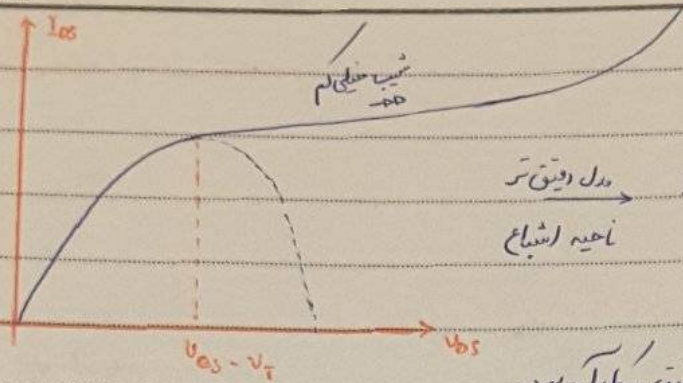 I_DS
شیب خیلی کم
مدل دقیق تر
ناحیه اشباع
V_DS
V_GS - V_T